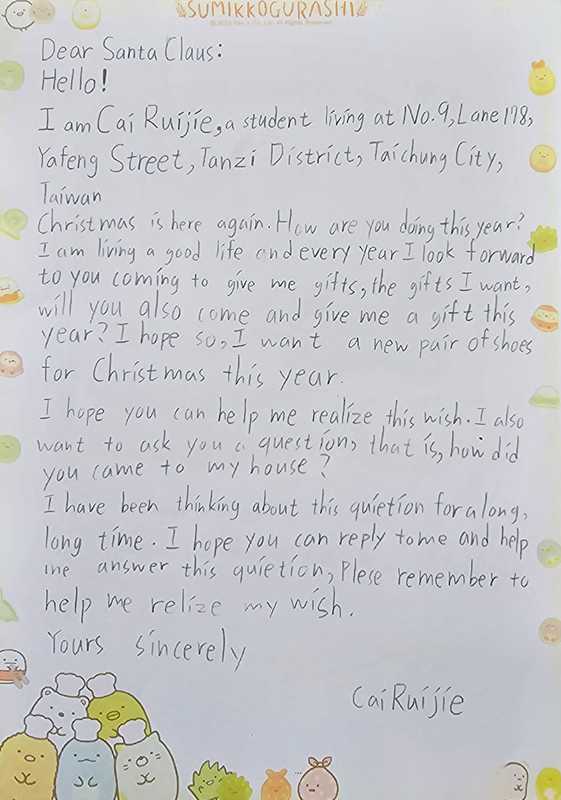 SUMIKKOGURASHI
Dear Santa Claus:
Hello!
I am Cai Ruijie, a student living at No.9, Lane 178,
Yafeng Street, Tanzi District, Taichung City,
Taiwan
Christmas is here again. How are you doing this year?
I am living a good life and every year I look forward
to you coming to give me gifts, the gifts I want,
will you also come and give me a gift this
year? I hope so, I want a new pair of shoes
for Christmas this year.
I hope you can help me realize this wish. I also
want to ask you a question, that is, how did
you came to my house?
I have been thinking about this quietion for a long,
long time. I hope you can reply to me and help
me answer this quietion, Plese remember to
help me relize my wish.
Yours sincerely
Cai Ruijie